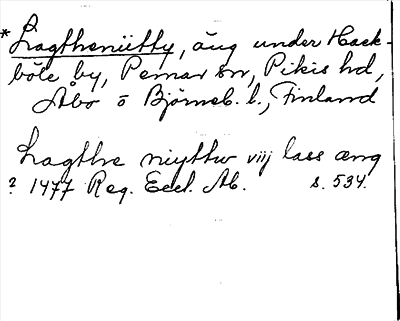 * Lagtheniitty, äng under Hack-
böle by, Pemar sn, Pikis hd,
Åbo o Björneb. l., Finland
Lagthe niyttw viij lass æng
? 1477 Reg. Eccl. Ab. s. 534.